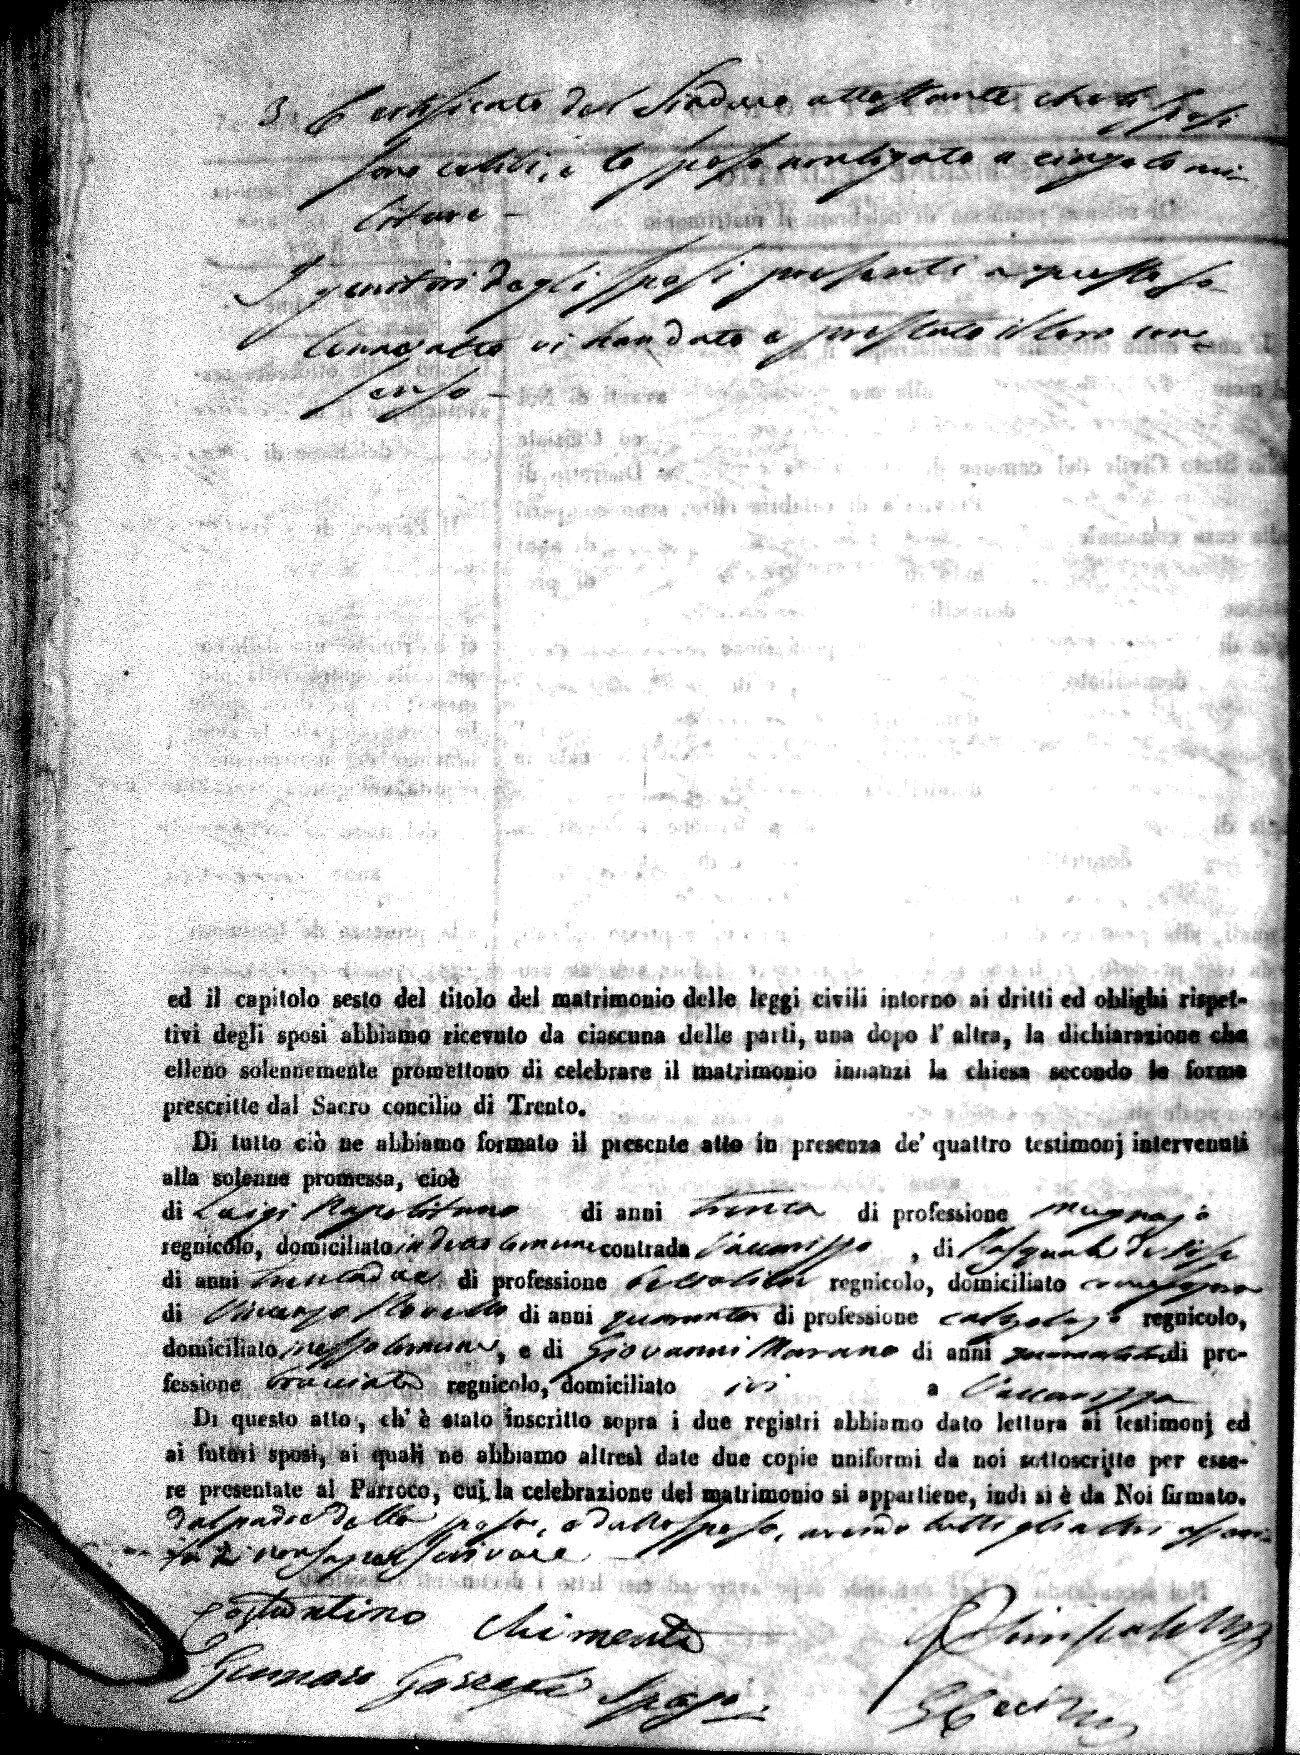 3. Certificato del Sindaco attestante che li sposi
sono celibi, e lo sposo non ligato a cingolo mi-
litare -
I genitori degli sposi presenti a questo so-
lenne atto vi han dato e prestato il loro con-
senso -
ed il capitolo sesto del titolo del matrimonio delle leggi civili intorno ai dritti ed oblighi rispet-
tivi degli sposi abbiamo ricevuto da ciascuna delle parti, una dopo l' altra, la dichiarazione che
elleno solennemente promettono di celebrare il matrimonio innanzi la chiesa secondo le forme
prescritte dal Sacro concilio di Trento.
Di tutto ciò ne abbiamo formato il presente atto in presenza de' quattro testimonj intervenuti
alla solenne promessa, cioè
di Luigi Napolitano di anni trenta di professione mugnajo
regnicolo, domiciliato in detto comune contrada Vaccarizzo , di Pasquale
di anni trentadue di professione regnicolo, domiciliato
di Vincenzo di anni quaranta di professione calzolajo regnicolo,
domiciliato nesso comune, e di Giovanni Marano di anni di pro-
fessione bracciale regnicolo, domiciliato ivi a Vaccarizzo
Di questo atto, ch' è stato inscritto sopra i due registri abbiamo dato lettura ai testimonj ed
ai futuri sposi, ai quali ne abbiamo altresì date due copie uniformi da noi sottoscritte per esse-
re presentate al Parroco, cui la celebrazione del matrimonio si appartiene, indi si è da Noi firmato.
dal padre della sposa, e dallo sposo, avendo tutti gli altri
di non saper scrivere -
Costantino Chimenti
Gennaro sposo